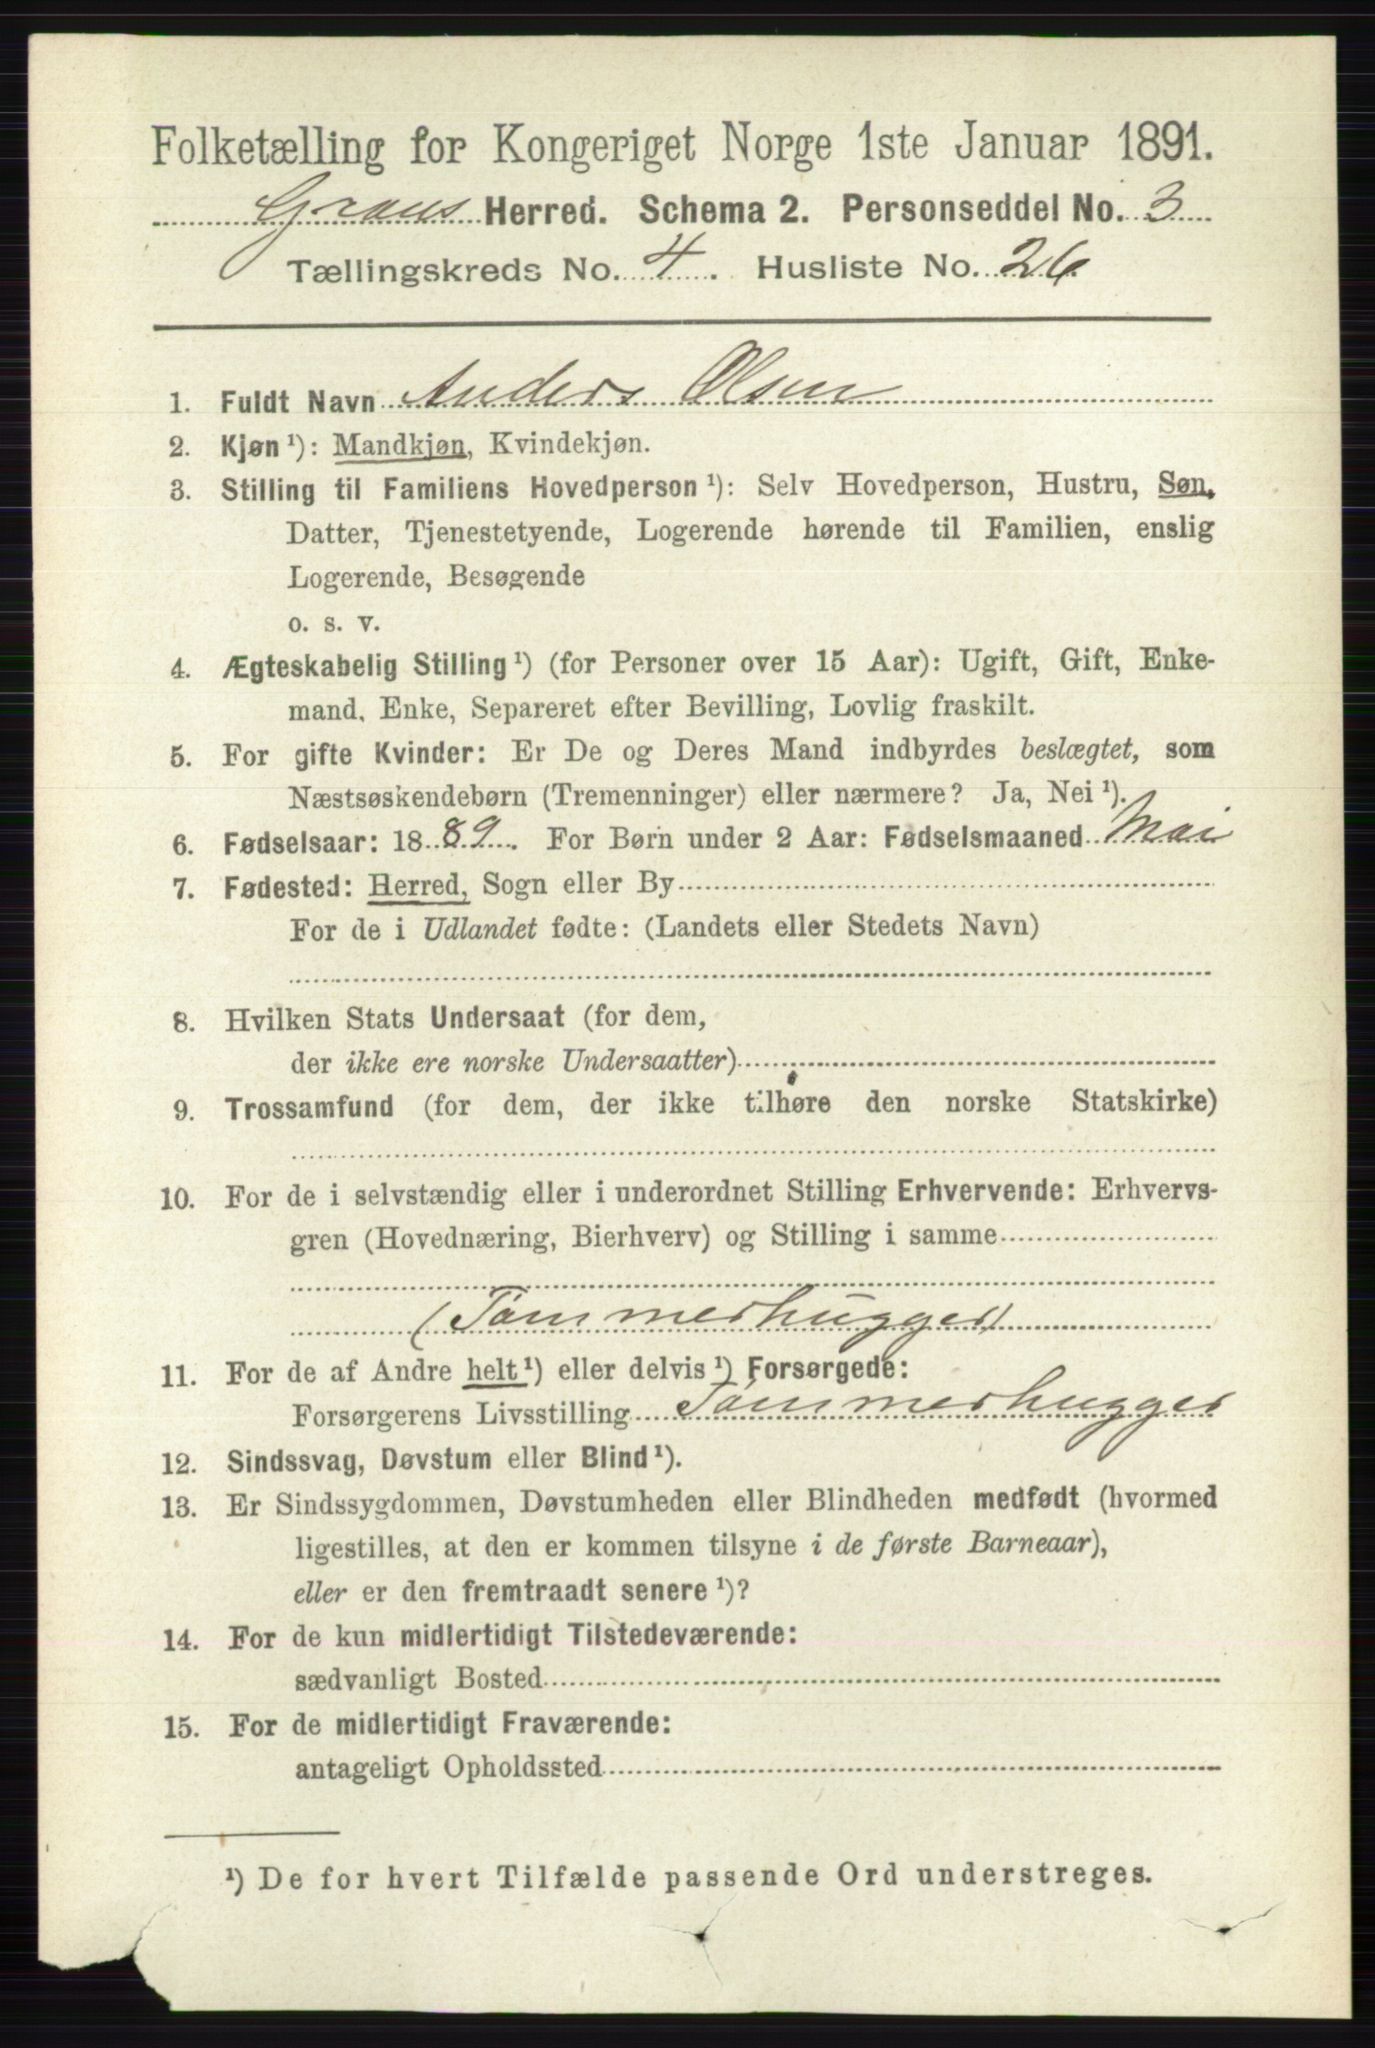 Folketælling for Kongeriget Norge 1ste Januar 1891.
Grans Herred. Schema 2. Personseddel No. 3
Tællingskreds No. 4. Husliste No. 26
1. Fuldt Navn Anders Olsen
2. Kjøn ¹): Mandkjøn, Kvindekjøn.
3. Stilling til Familiens Hovedperson ¹): Selv Hovedperson, Hustru, Søn,
Datter, Tjenestetyende, Logerende hørende til Familien, enslig
Logerende, Besøgende
o. s. v.
4. Ægteskabelig Stilling ¹) (for Personer over 15 Aar): Ugift, Gift, Enke-
mand, Enke, Separeret efter Bevilling, Lovlig fraskilt.
5. For gifte Kvinder: Er De og Deres Mand indbyrdes beslægtet, som
Næstsøskendebørn (Tremenninger) eller nærmere? Ja, Nei ¹).
6. Fødselsaar: 1889. For Børn under 2 Aar: Fødselsmaaned Mai
7. Fødested: Herred, Sogn eller By
For de i Udlandet fødte: (Landets eller Stedets Navn)
8. Hvilken Stats Undersaat (for dem,
der ikke ere norske Undersaatter)
9. Trossamfund (for dem, der ikke tilhøre den norske Statskirke)
10. For de i selvstændig eller i underordnet Stilling Erhvervende: Erhvervs-
gren (Hovednæring, Bierhverv) og Stilling i samme
(Tømmerhugger)
11. For de af Andre helt ¹) eller delvis ¹) Forsørgede:
Forsørgerens Livsstilling Tømmerhugger
12. Sindssvag, Døvstum eller Blind ¹).
13. Er Sindssygdommen, Døvstumheden eller Blindheden medfødt (hvormed
ligestilles, at den er kommen tilsyne i de første Barneaar),
eller er den fremtraadt senere ¹)?
14. For de kun midlertidigt Tilstedeværende:
sædvanligt Bosted
15. For de midlertidigt Fraværende:
antageligt Opholdssted
¹) De for hvert Tilfælde passende Ord understreges.